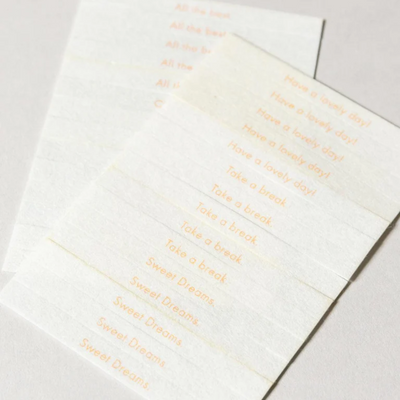 All the best.
All the best
All the be
All the
All th
Have a lovely day!
Have a lovely day!
Have a lovely day!
Have a lovely day!
Have a lovely day!
Take a break.
Take a break.
Take a break.
Take a break.
Take a break.
Sweet Dreams.
Sweet Dreams.
Sweet Dreams.
Sweet Dreams.
Sweet Dreams.